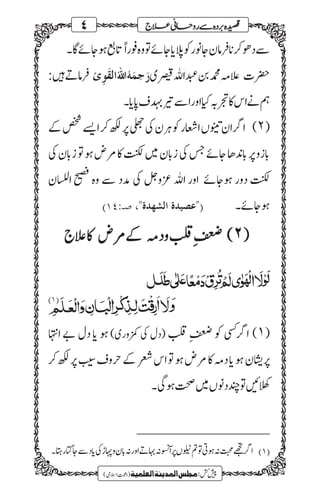 قصیدہ بردہ سے روحانی علاج
٤
سے دھو کر نافرمان جانور کو پلایا جائے تو وہ فوراً تابع ہو جائے گا۔
حضرت علامہ محمد بن عبد اللہ قیصری رَحِمَهُ اللهُ الْقَوِی فرماتے ہیں:
ہم نے اس کا تجربہ کیا اور اسے تیر بہدف پایا۔
(٢) اگر ان تینوں اشعار کو ہرن کی جھلّی پر لکھ کر ایسے شخص کے
بازو پر باندھا جائے جس کی زبان میں لکنت کا مرض ہو تو زبان کی
لکنت دور ہو جائے اور اللہ عزوجل کی مدد سے وہ فصیح اللسان
ہو جائے۔ ("عصیدة الشهدة"، صـ:١٤)
(٢) ضعفِ قلب و دمہ کے مرض کا علاج
لَوْلَا الْهَوٰى لَمْ تُرِقْ دَمْعًا عَلٰى طَلَلٍ
وَلَا اَرِقْتَ لِذِكْرِ الْبَانِ وَالْعَلَمِ (١)
(١) اگر کسی کو ضعفِ قلب (دل کی کمزوری) ہو یا دل بے انتہا
پریشان ہو یا دمہ کا مرض ہو تو اس شعر کے حروف سیب پر لکھ کر
کھلائیں تو چند دنوں میں صحت ہوگی۔
(١) اگر تجھے محبت نہ ہوتی تو تم ٹیلوں پر آنسو نہ بہاتے اور نہ بان و پہاڑ کی یاد سے جاگتا رہتا۔
پیش کش: مجلس المدینة العلمیة (دعوت اسلامی)